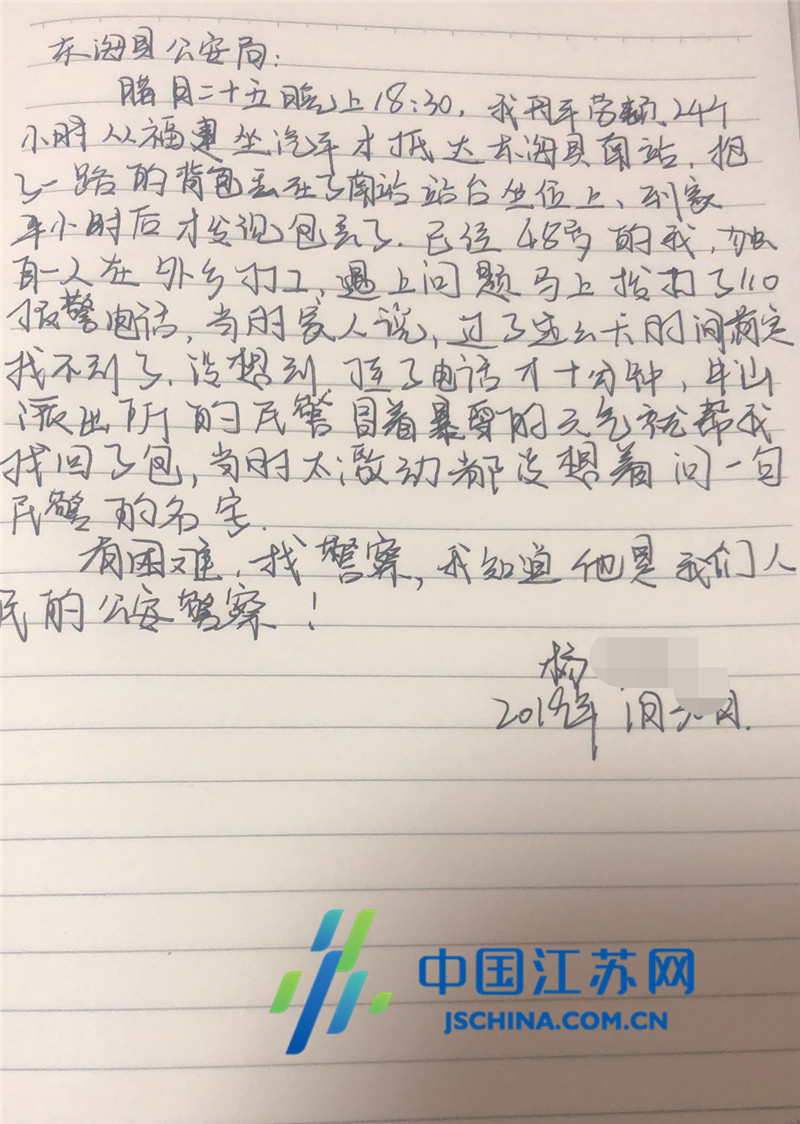 东海县公安局：
腊月二十五晚上18:30，我舟车劳顿、24个
小时从福建坐汽车才抵达东海县南站，抱
了一路的背包丢在了南站站台坐位上、到家
半小时后才发现包丢了．已经48岁的我，独
自一人在外乡打工，遇上问题马上拨打了110
报警电话，当时家人说，过了这么长时间肯定
找不到了，没想到 挂了电话才十分钟，牛山
派出所的民警冒着暴雪的天气就帮我
找回了包，当时太激动都没想着问一句
民警的名字．
有困难，找警察，我知道他是我们人
民的公安警察！
杨
2019年 1月 日．
中国江苏网
JSCHINA.COM.CN